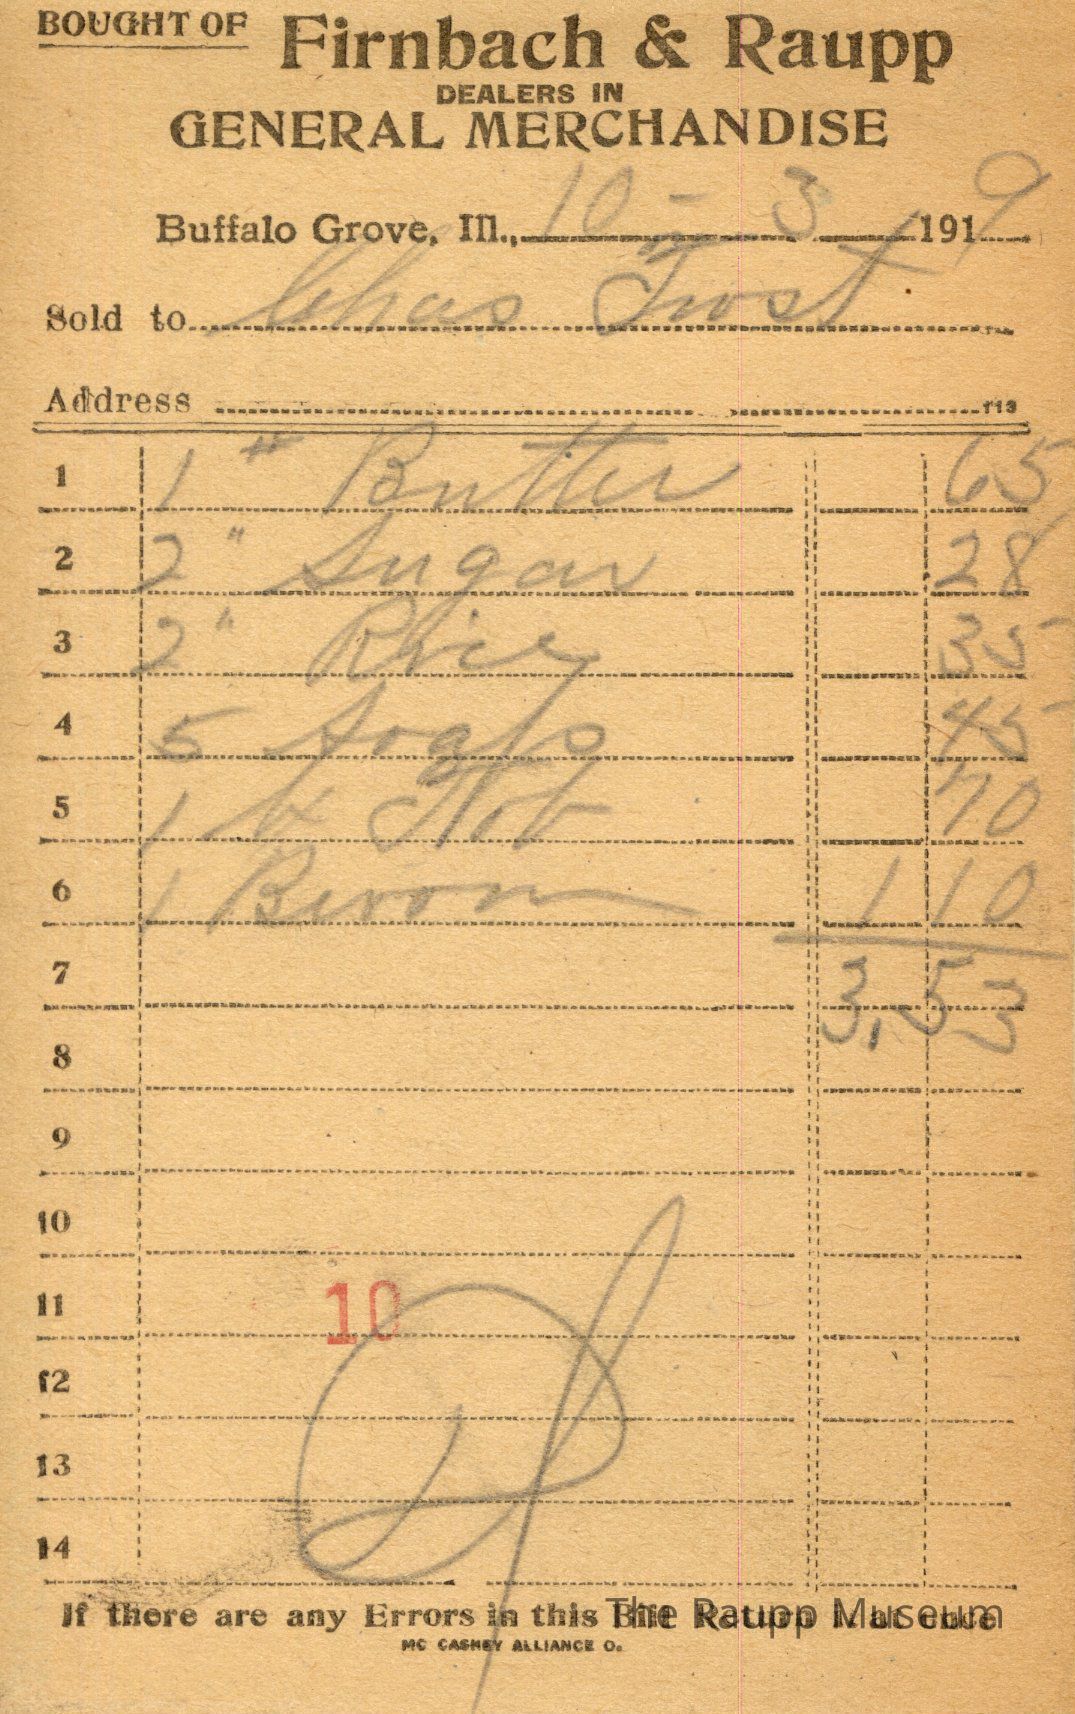 BOUGHT OF Firnbach & Raupp
DEALERS IN
GENERAL MERCHANDISE
Buffalo Grove, Ill., 10 - 3 1919
Sold to Chas Trost
Address
113
1 1 # Butter 65
2 2 " Sugar 28
3 2 " Rice 35
4 5 Soaps 45
5 1 70
6 1 1 10
7 3,53
8
9
10
11 10
12
13
14
If there are any Errors in this Bill Return it at once
The Raupp Museum
MC CASKEY ALLIANCE O.